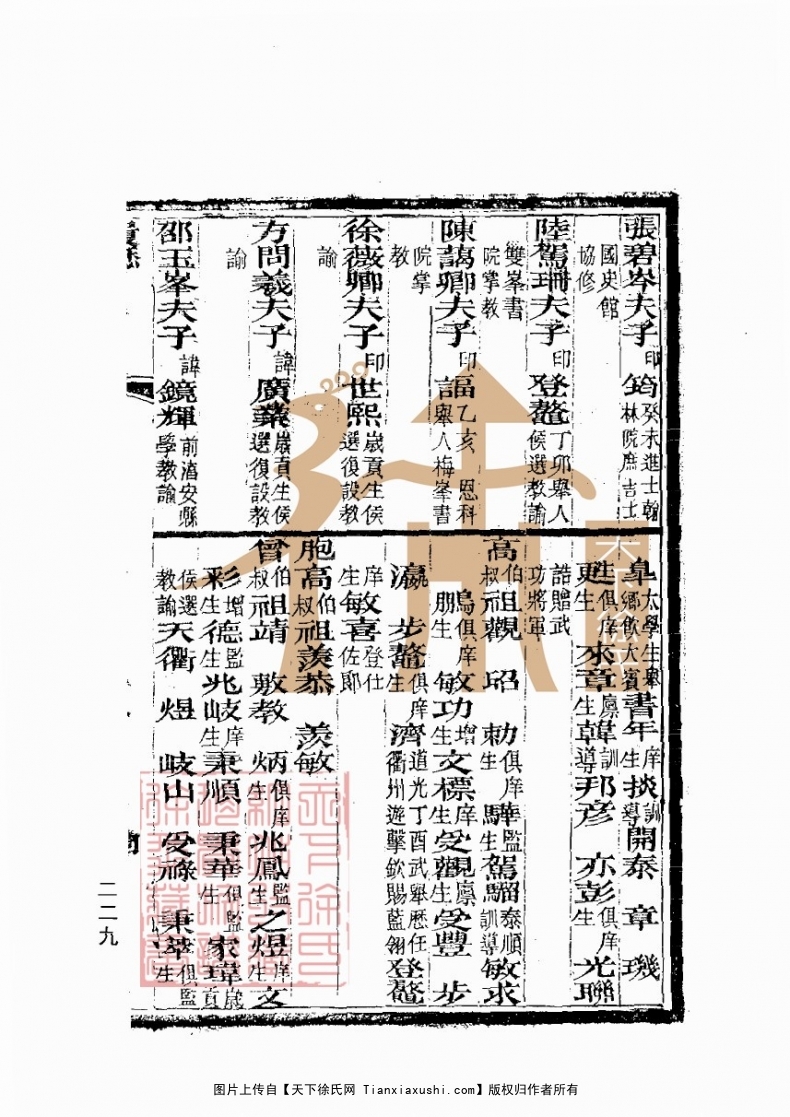 張碧岑夫子印筠癸未進士翰林院庶吉士
國史館
協修
陸駕珊夫子印登鼇丁卯舉人候選教諭
雙峯書
院掌教
陳藹卿夫子印乙亥恩科舉人梅峯書
院掌
教
徐薇卿夫子印世熙歲貢生候選復設教
諭
方問羲夫子諱廣業歲貢生候選復設教
諭
邵玉峯夫子諱鏡輝前安縣學教諭
太學生舉鄉飲大賓書年庠生掞訓導開泰 章璣
甦俱庠生來章廩生韓訓導邦彥 亦彭俱庠生光聯
誥贈武
功將軍
高伯叔祖觀 昭 勅俱庠生驊監生駕騮泰順訓導敏求
鵬俱庠生敏功增生文標庠生受廩生受豐 步
瀛 步鼇俱庠生濟道光丁酉武舉歷任衢州遊擊欽賜藍翎登鼇
庠生敏喜登仕佐郎
胞高伯叔祖羨恭 羨敏
曾伯叔祖靖 敭教 炳俱庠生兆鳳監生之煜庠生文
彩增生德監生兆岐庠生秉順 秉華俱監生家瑋歲貢
候選教諭天衢 煜 岐山 受祿 秉萃俱監生
二二九
图片上传自【天下徐氏网 Tianxiaxushi.com】版权归作者所有